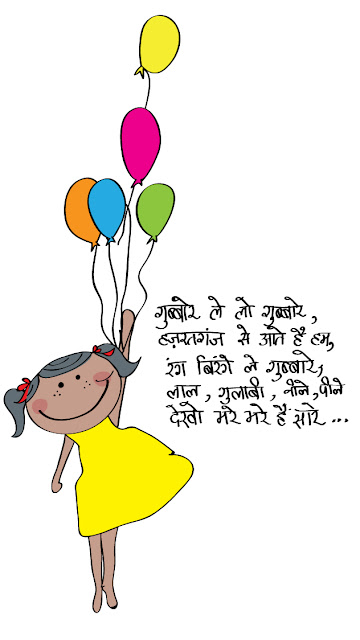 गुब्बारे ले लो गुब्बारे,
हज़रतगंज से आते हैं हम,
रंग बिरंगे ले गुब्बारे,
लाल, गुलाबी, नीले, पीले
देखो मेरे मेरे हैं सारे ...